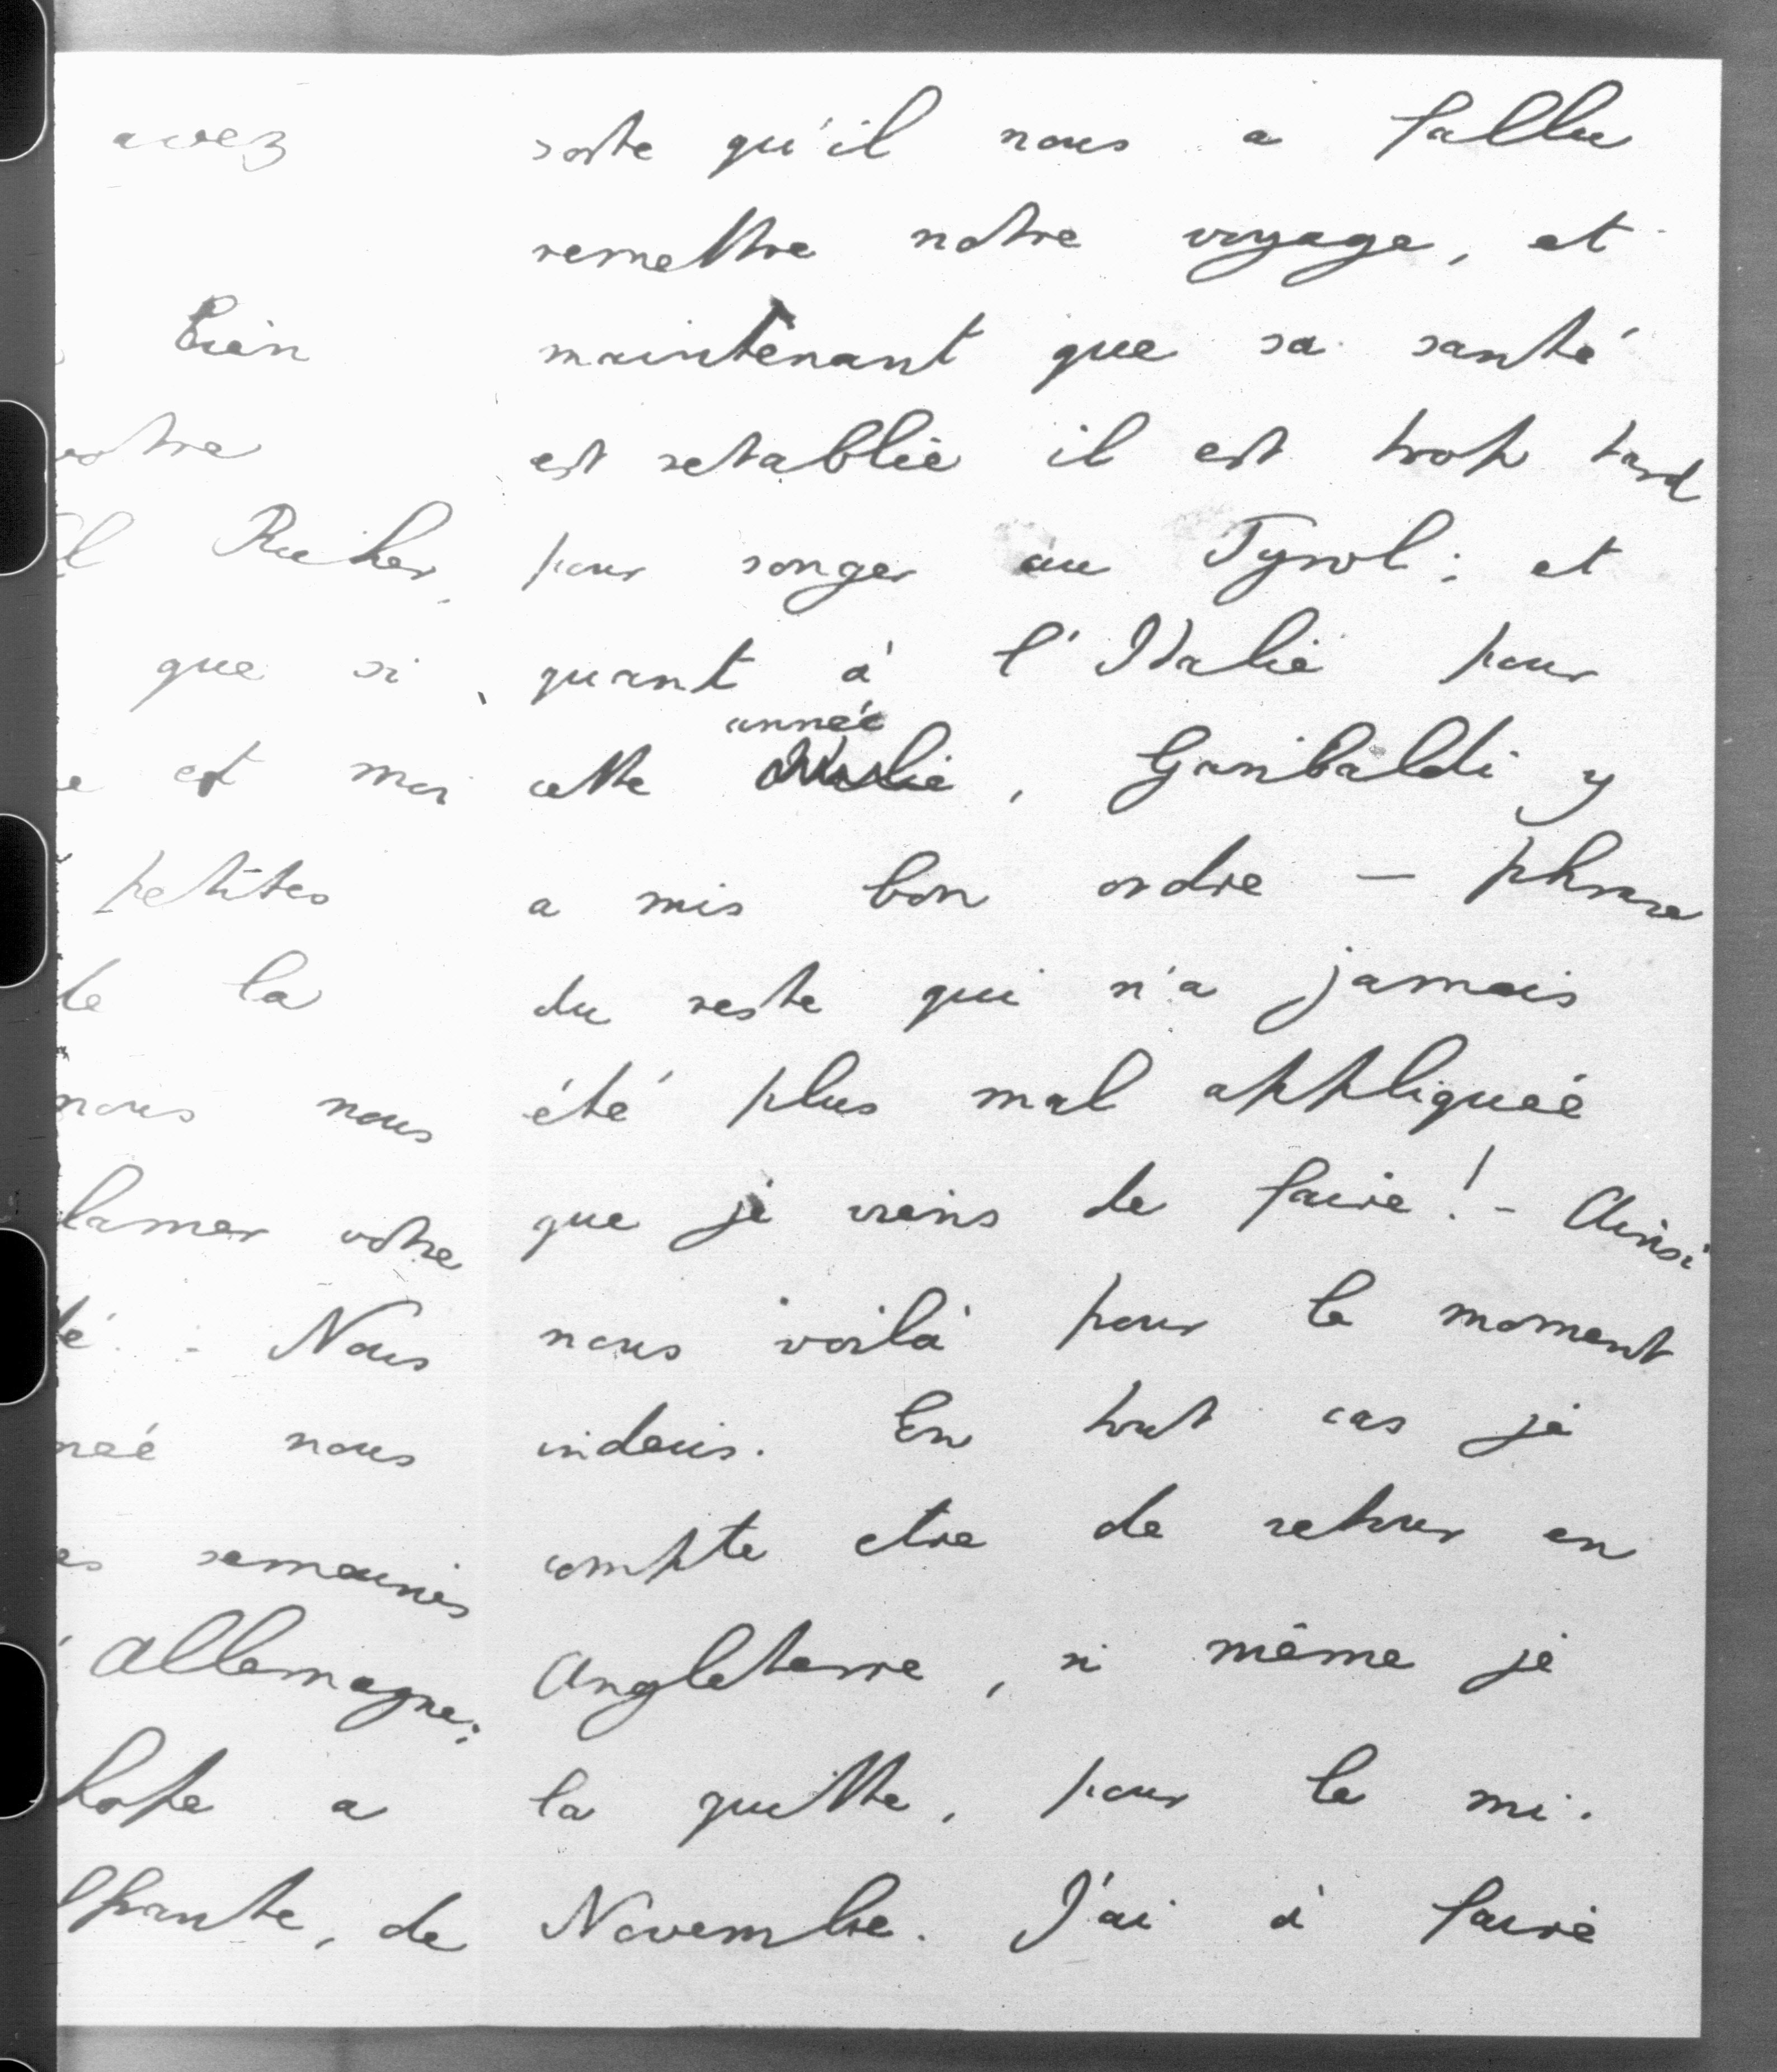 avez
bien
Reiher,
que si
est moi
petites
de la
nous nous
votre
Nous
nous
semaines
Allemagne;
a
de
sorte qu'il nous a fallu
remettre notre voyage, et
maintenant que sa santé
est retablie il est trop tard
pour songer au Tyrol; et
quant à l'Italie pour
année
cette , Garibaldi y
a mis bon ordre — phrase
du reste qui n'a jamais
été plus mal appliquée
que je viens de faire! - Ainsi
nous voilà pour le moment
indecis. En tout cas je
compte etre de retour en
Angleterre, si même je
la quitte, pour le mi-
Novembre. J'ai à faire